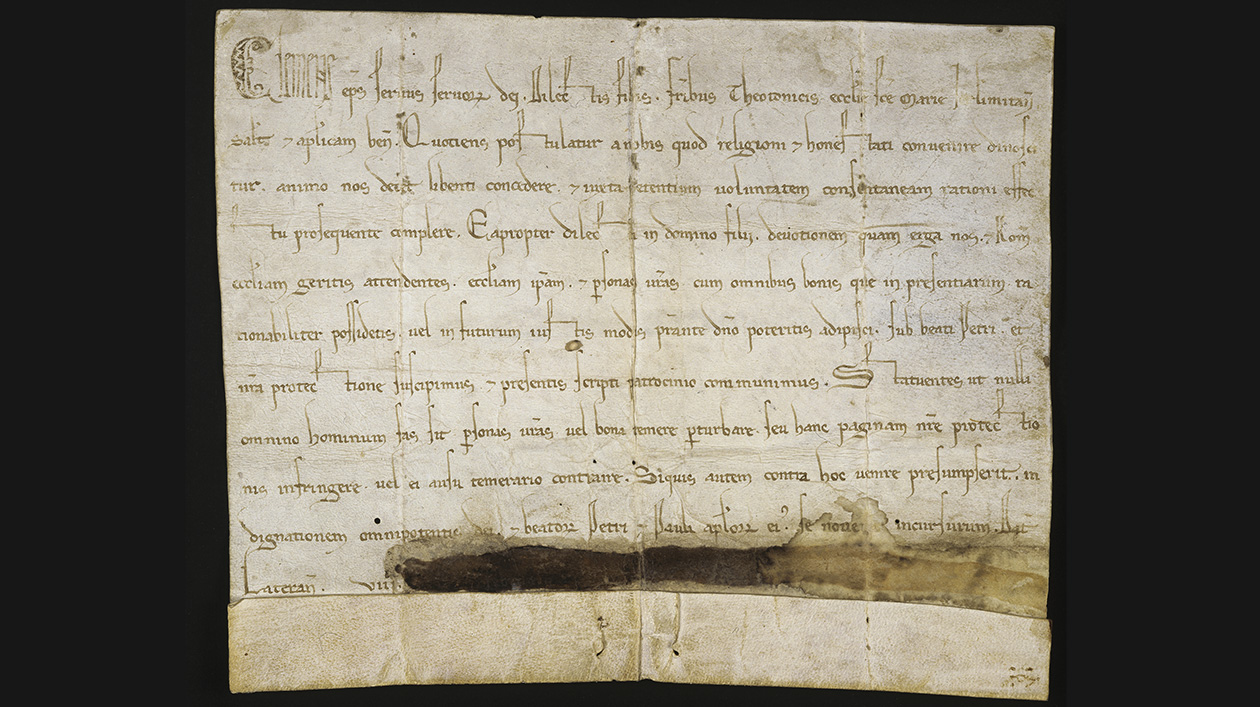 Clemens eps servus servorꝝ dei. Dilectis filiis. fribus Theotonicis ecclie sce Marie Ierlimitañ
saltͤ ⁊ aplicam beñ. Quotiens postulatur a nobis quod religioni ⁊ honestati convenire dinosci
tur. animo nos decet libenti concedere. ⁊ iuxta petentium voluntatem consentaneam rationi effec
tu prosequente complere. Eapropter dilecti in domino filii. devotionem quam erga nos. ⁊ Rom̄
eccliam geritis attendentes. eccliam ipam. ⁊ psonas uras. cum omnibus bonis que in presentiarum ra
tionabiliter possidetis. vel in futurum iustis modis prante dno poteritis adipisci. sub beati Petri. et
nra protectione suscipimus. ⁊ presentis scripti patrocinio communimus. Statuentes ut nulli
omnino hominum fas sit psonas uras. vel bona temere pturbare. seu hanc paginam nre protectio
nis infringere. vel ei ausu temerario contraire. Siquis autem contra hoc venire presumpserit. in
dignationem omnipotentis dei. ⁊ beatoꝝ Petri ⁊ Pauli aploꝝ ei' se noverit incursurum. Dat
Laterañ. viii.